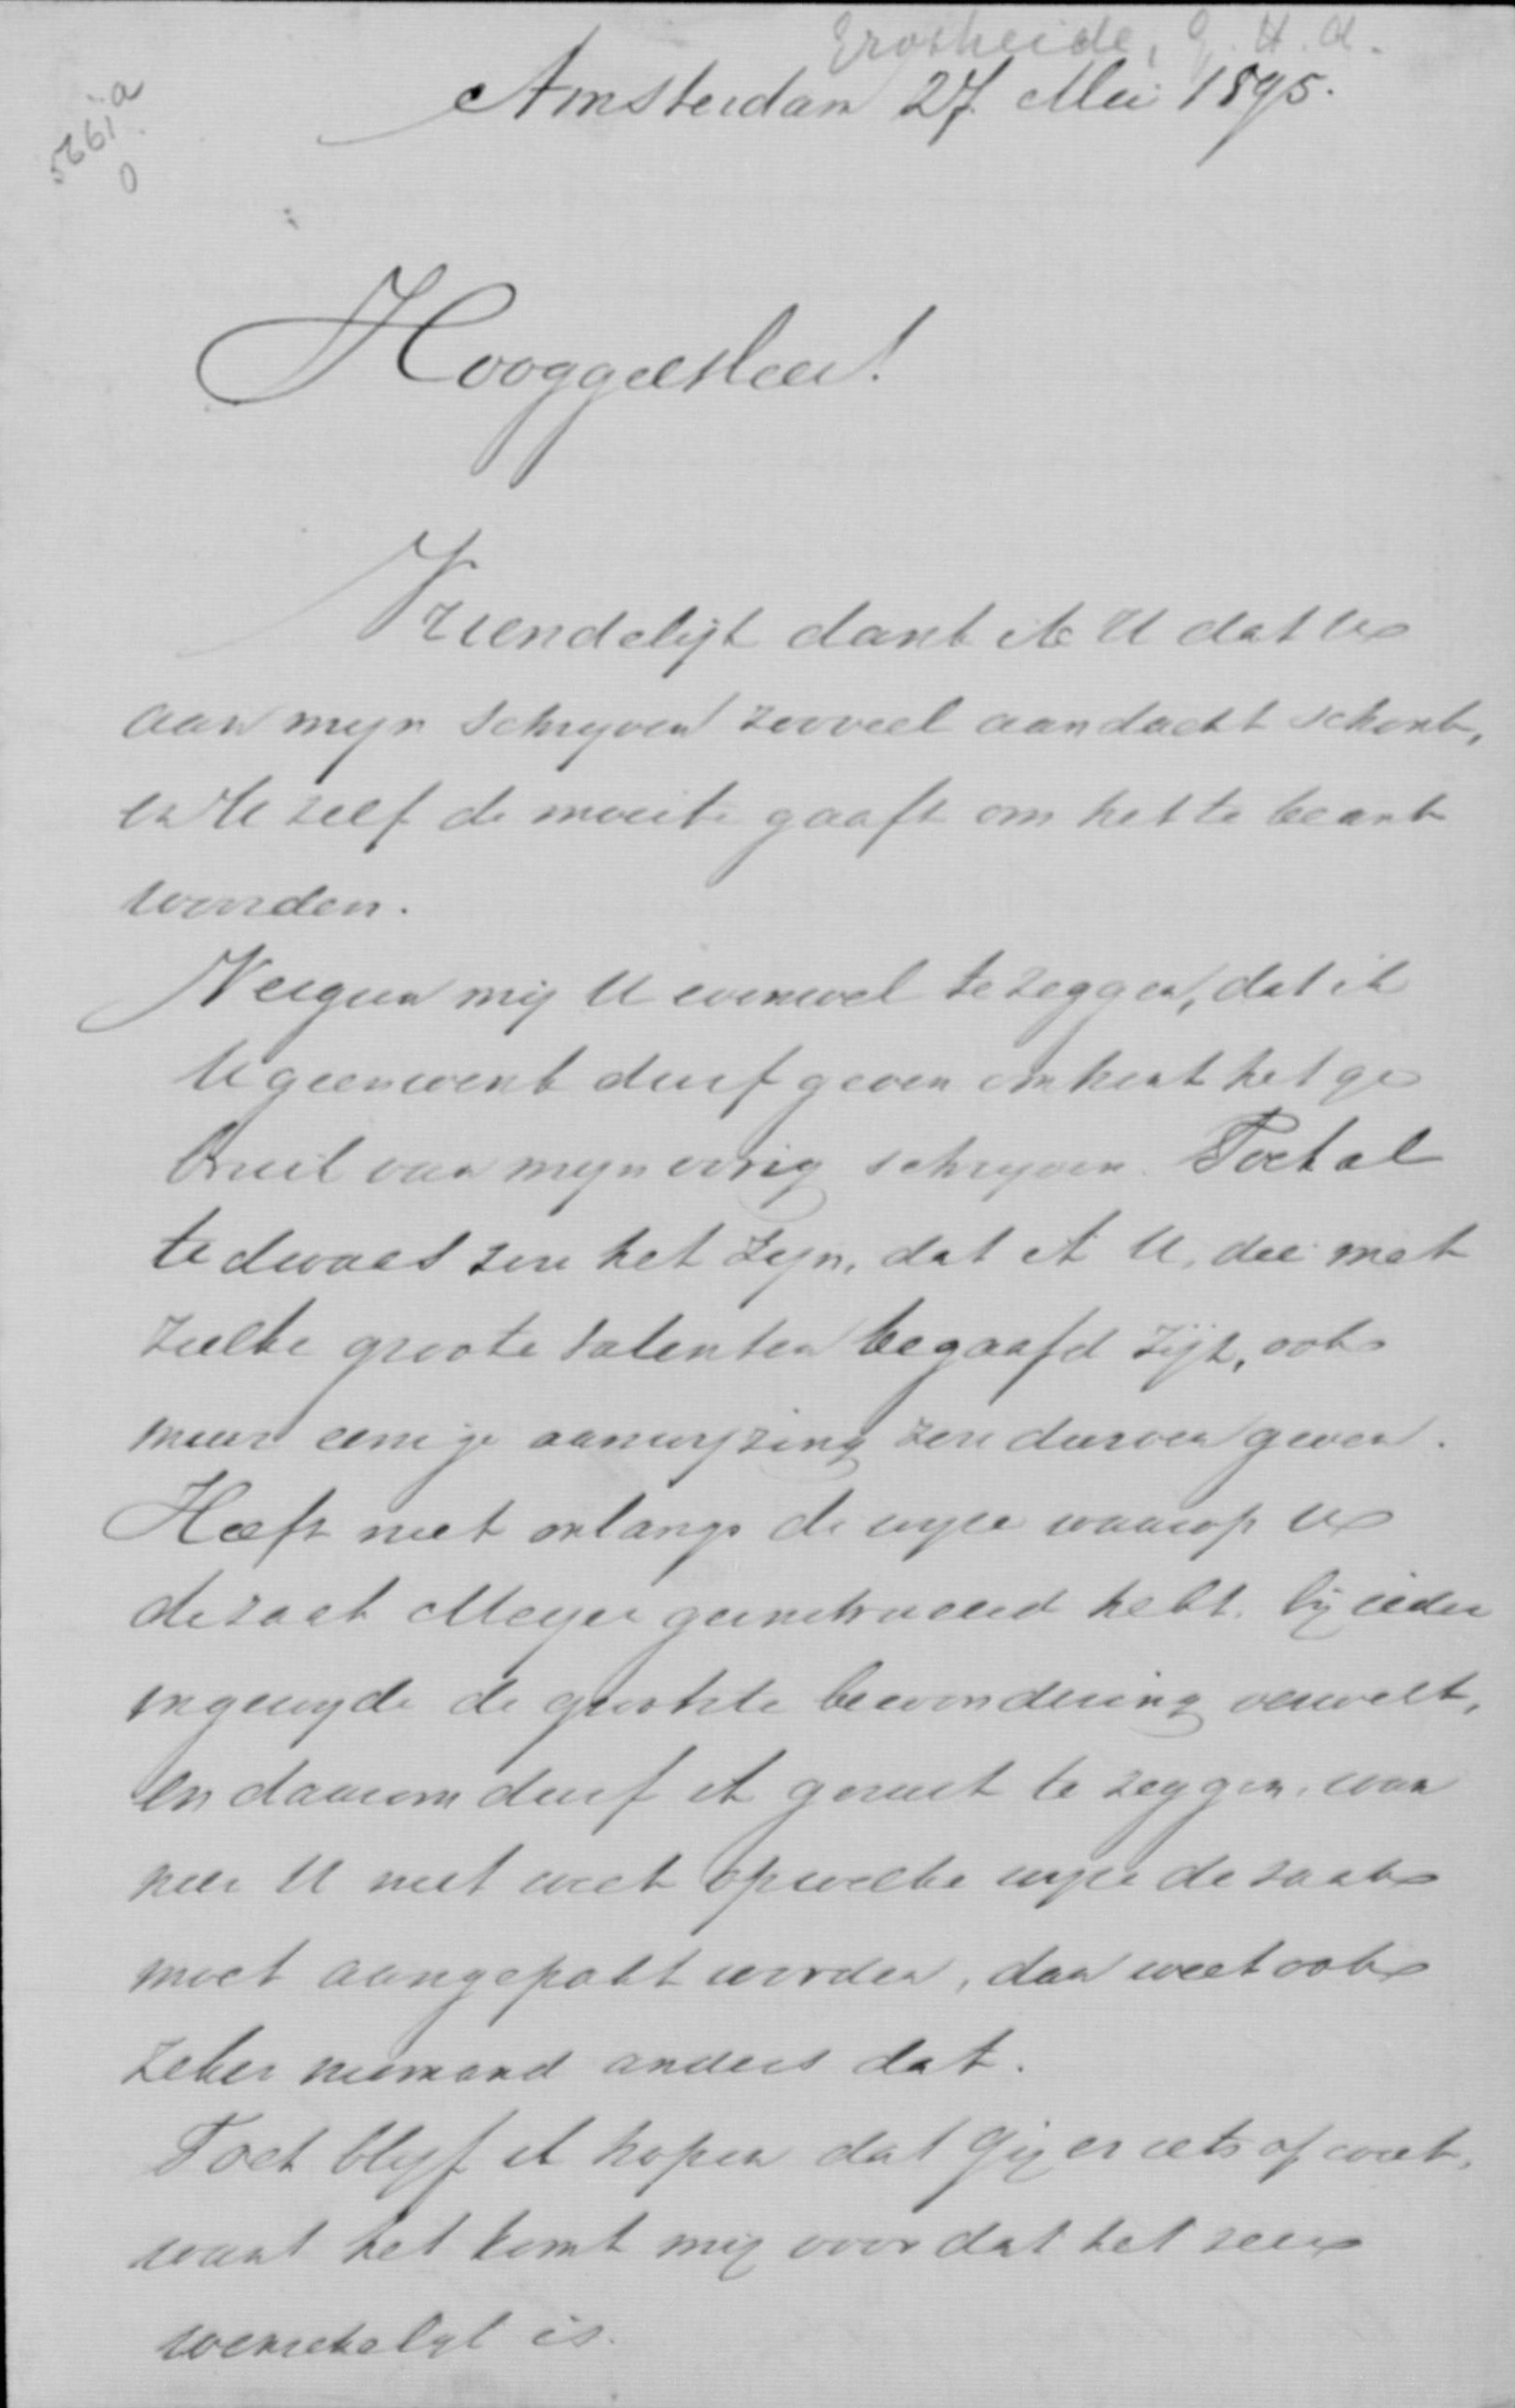 Erosheide, G. H. A.
Amsterdam 27 Mei 1895.
5661a
0
HoogEdelHeer!
Vriendelijk dank ik U dat U
aan mijn schrijven zooveel aandacht schonk,
en U zelf de moeite gaaft om het te beant
woorden.
Vergun mij U evenwel te zeggen, dat ik
U geen wenk durf geven omtrent het ge
bruik van mijn vorig schrijven. Toch al
te dwaas zou het zijn, dat ik U, die met
zulke groote talenten begaafd zijt, ook
maar eenige aanwijzing zou durven geven.
Heeft niet onlangs de wijze waarop U
de zaak Meyer geinstrueerd hebt, bij ieder
ingewijde de grootste bewondering verwekt,
en daarom durf ik gerust te zeggen, wan
neer U niet weet op welke wijze de zaak
moet aangepakt worden, dan weet ook
zeker niemand anders dat.
Toch blijf ik hopen dat Gij er iets op weet,
want het komt mij voor dat het zeer
wenschelijk is.